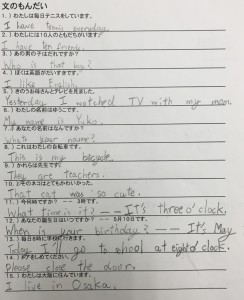 文のもんだい
1.）わたしは毎日テニスをしています。
I have tennis everyday.
2.）わたしには10人のともだちがいます。
I have ten friend.
3.）あの男の子はだれですか？
Who is that boy?
4.）ぼくは英語がだいすきです。
I like English.
5.）きのうお母さんとテレビを見ました。
Yesterday I watched TV with my mom.
6.）わたしの名前はゆうこです。
My name is Yuko.
7.）あなたの名前はなんですか？
What's your name?
8.）これはわたしの自転車です。
This is my bicycle.
9.）かれらは先生です。
They are teachers.
10.）あのネコはとてもかわいかった。
That cat was so cute.
11.）今何時ですか？ーー3時です。
What time is it? ーー It's three o'clock.
12.）あなたの誕生日はいつですか？ーー5月10です。
When is your birthday? ーー It's May
13.）毎日8時に学校に行きます。
I'll go to school at eight o'clock.
14.）ドアをしめてください。
Please close the door.
15.）わたしは大阪に住んでいます。
I live in Osaka.